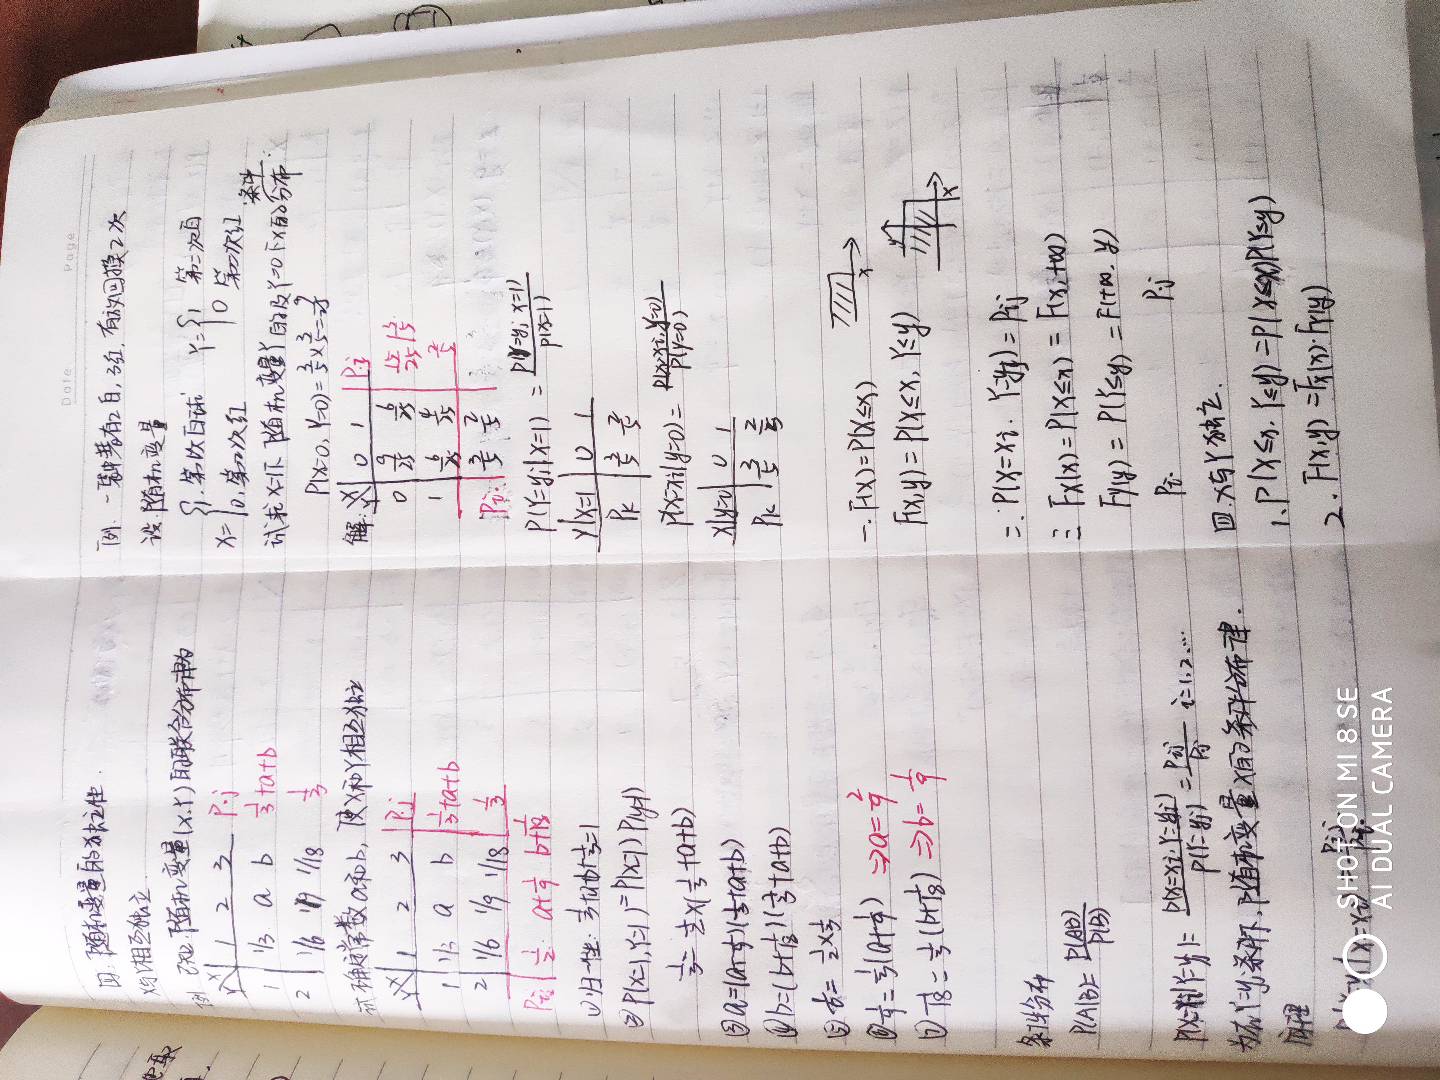 四. 随机变量的独立性.
X与Y相互独立.
例 已知随机变量(X,Y)的联合分布律为
Y\X 1 2 3 P·j
1 1/3 a b 1/3+a+b
2 1/6 1/9 1/18 1/3
试确定常数a和b, 使X和Y相互独立
Y\X 1 2 3 P·j
1 1/3 a b 1/3+a+b
2 1/6 1/9 1/18 1/3
Pi· 1/2 a+1/9 b+1/18
① 归一性: 1/3+a+b+1/3=1
② P(X=1,Y=1)=P(X=1)P(y=1)
1/3=1/2×(1/3+a+b)
③ a=(a+1/9)(1/3+a+b)
④ b=(b+1/18)(1/3+a+b)
⑤ 1/6=1/2×1/3
⑥ 1/9=1/3(a+1/9) ⇒a=2/9
⑦ 1/18=1/3(b+1/18) ⇒b=1/9
条件分布
P(A|B)=P(AB)/P(B)
P(X=xi|Y=yj)=P(X=xi,Y=yj)/P(Y=yj)=Pij/P·j i=1,2....
为在Y=yj条件下, 随机变量X的条件分布律.
同理
SHOT ON MI 8 SE
AI DUAL CAMERA
Date Page
例. 一袋中装有2白, 3红, 有放回摸2次
设随机变量
X={1, 第一次白球 Y={1 第二次白
0, 第一次红 0 第二次红
条件
试求X=1下随机变量Y的及Y=0下X的分布.
P(X=0, Y=0)=3/5×3/5=9/25
解: Y\X 0 1 P·j
0 9/25 6/25 15/25 3/5
1 6/25 4/25 2/5
Pi· 3/5 2/5
P(Y=yj|X=1)=P(Y=yj X=1)/P(X=1)
Y|X=1 0 1
Pk 3/5 2/5
P(X=xi|y=0)=P(X=xi,Y=0)/P(Y=0)
X|y=0 0 1
Pk 3/5 2/5
一. F(x)=P(X≤x) x
F(x,y)=P(X≤x, Y≤y) y x
二. P(X=xi, Y=yj)=Pij
三 FX(x)=P(X≤x)=F(x,+∞)
FY(y)=P(Y≤y)=F(+∞, y)
Pi· P·j
四. X与Y独立.
1. P(X≤x, Y≤y)=P(X≤x)P(Y≤y)
2. F(x,y)=FX(x)·FY(y)